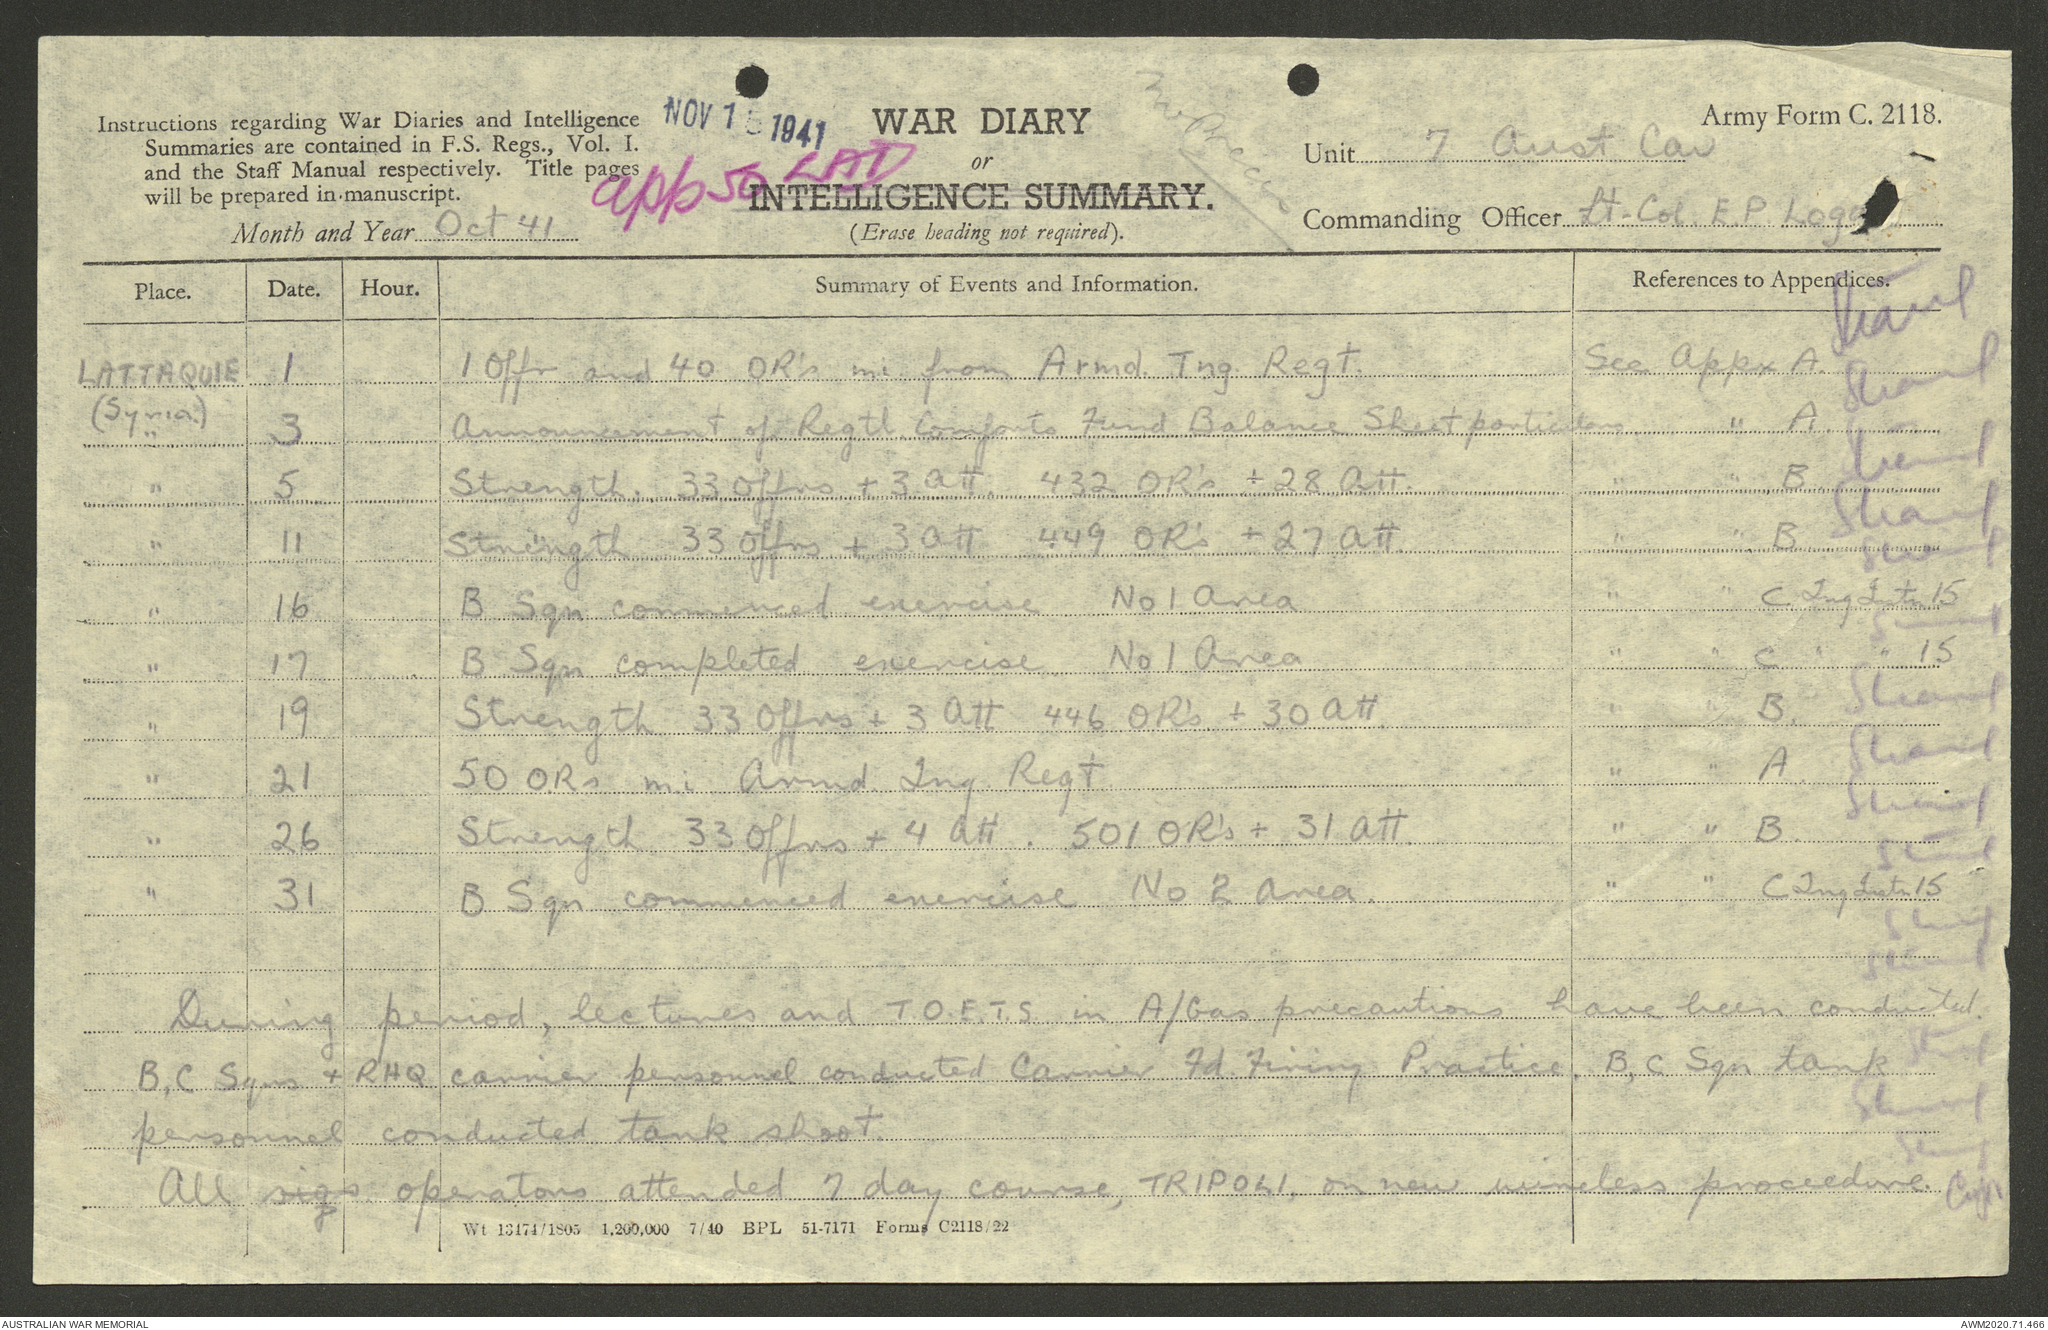 Instructions regarding War Diaries and Intelligence
Summaries are contained in F.S. Regs., Vol. I.
and the Staff Manual respectively. Title pages
will be prepared in manuscript.
Month and Year Oct 41
NOV 15 1941
app 50 LAD
WAR DIARY
or
INTELLIGENCE SUMMARY.
(Erase heading not required).
Army Form C. 2118.
Unit 7 Aust Cav
Commanding Officer Lt-Col. E.P. Logan
Place. Date. Hour. Summary of Events and Information. References to Appendices.
LATTAQUIE 1 1 Offr and 40 OR's m.i. from Armd. Tng. Regt. See Appx A.
(Syria.)
" 3 Announcement of Regtl. Comforts Fund Balance Sheet particulars " A.
" 5 Strength. 33 Offrs + 3 Att. 432 OR's + 28 Att. " " B.
" 11 Strength 33 Offrs + 3 Att 449 OR's + 27 Att. " " B.
" 16 B Sqn commenced exercise No 1 Area " " C Tng Instn 15
" 17 B Sqn completed exercise No 1 Area " " C " " 15
" 19 Strength 33 Offrs + 3 Att 446 OR's + 30 Att. " " B.
" 21 50 ORs m.i. Armd. Tng. Regt. " " A.
" 26 Strength 33 Offrs + 4 Att. 501 OR's + 31 Att. " " B.
" 31 B Sqn commenced exercise No 2 Area. " " C Tng Instn 15
During period, lectures and T.O.E.T.S. in A/Gas precautions have been conducted.
B, C Sqns + RHQ carrier personnel conducted Carrier Fd. Firing Practice. B, C Sqn tank
personnel conducted tank shoot.
All sigs. operators attended 7 day course, TRIPOLI, on new wireless proceedure.
Capt
Wt 13474/1805 1,200,000 7/40 BPL 51-7171 Forms C2118/22
AUSTRALIAN WAR MEMORIAL
AWM2020.71.466